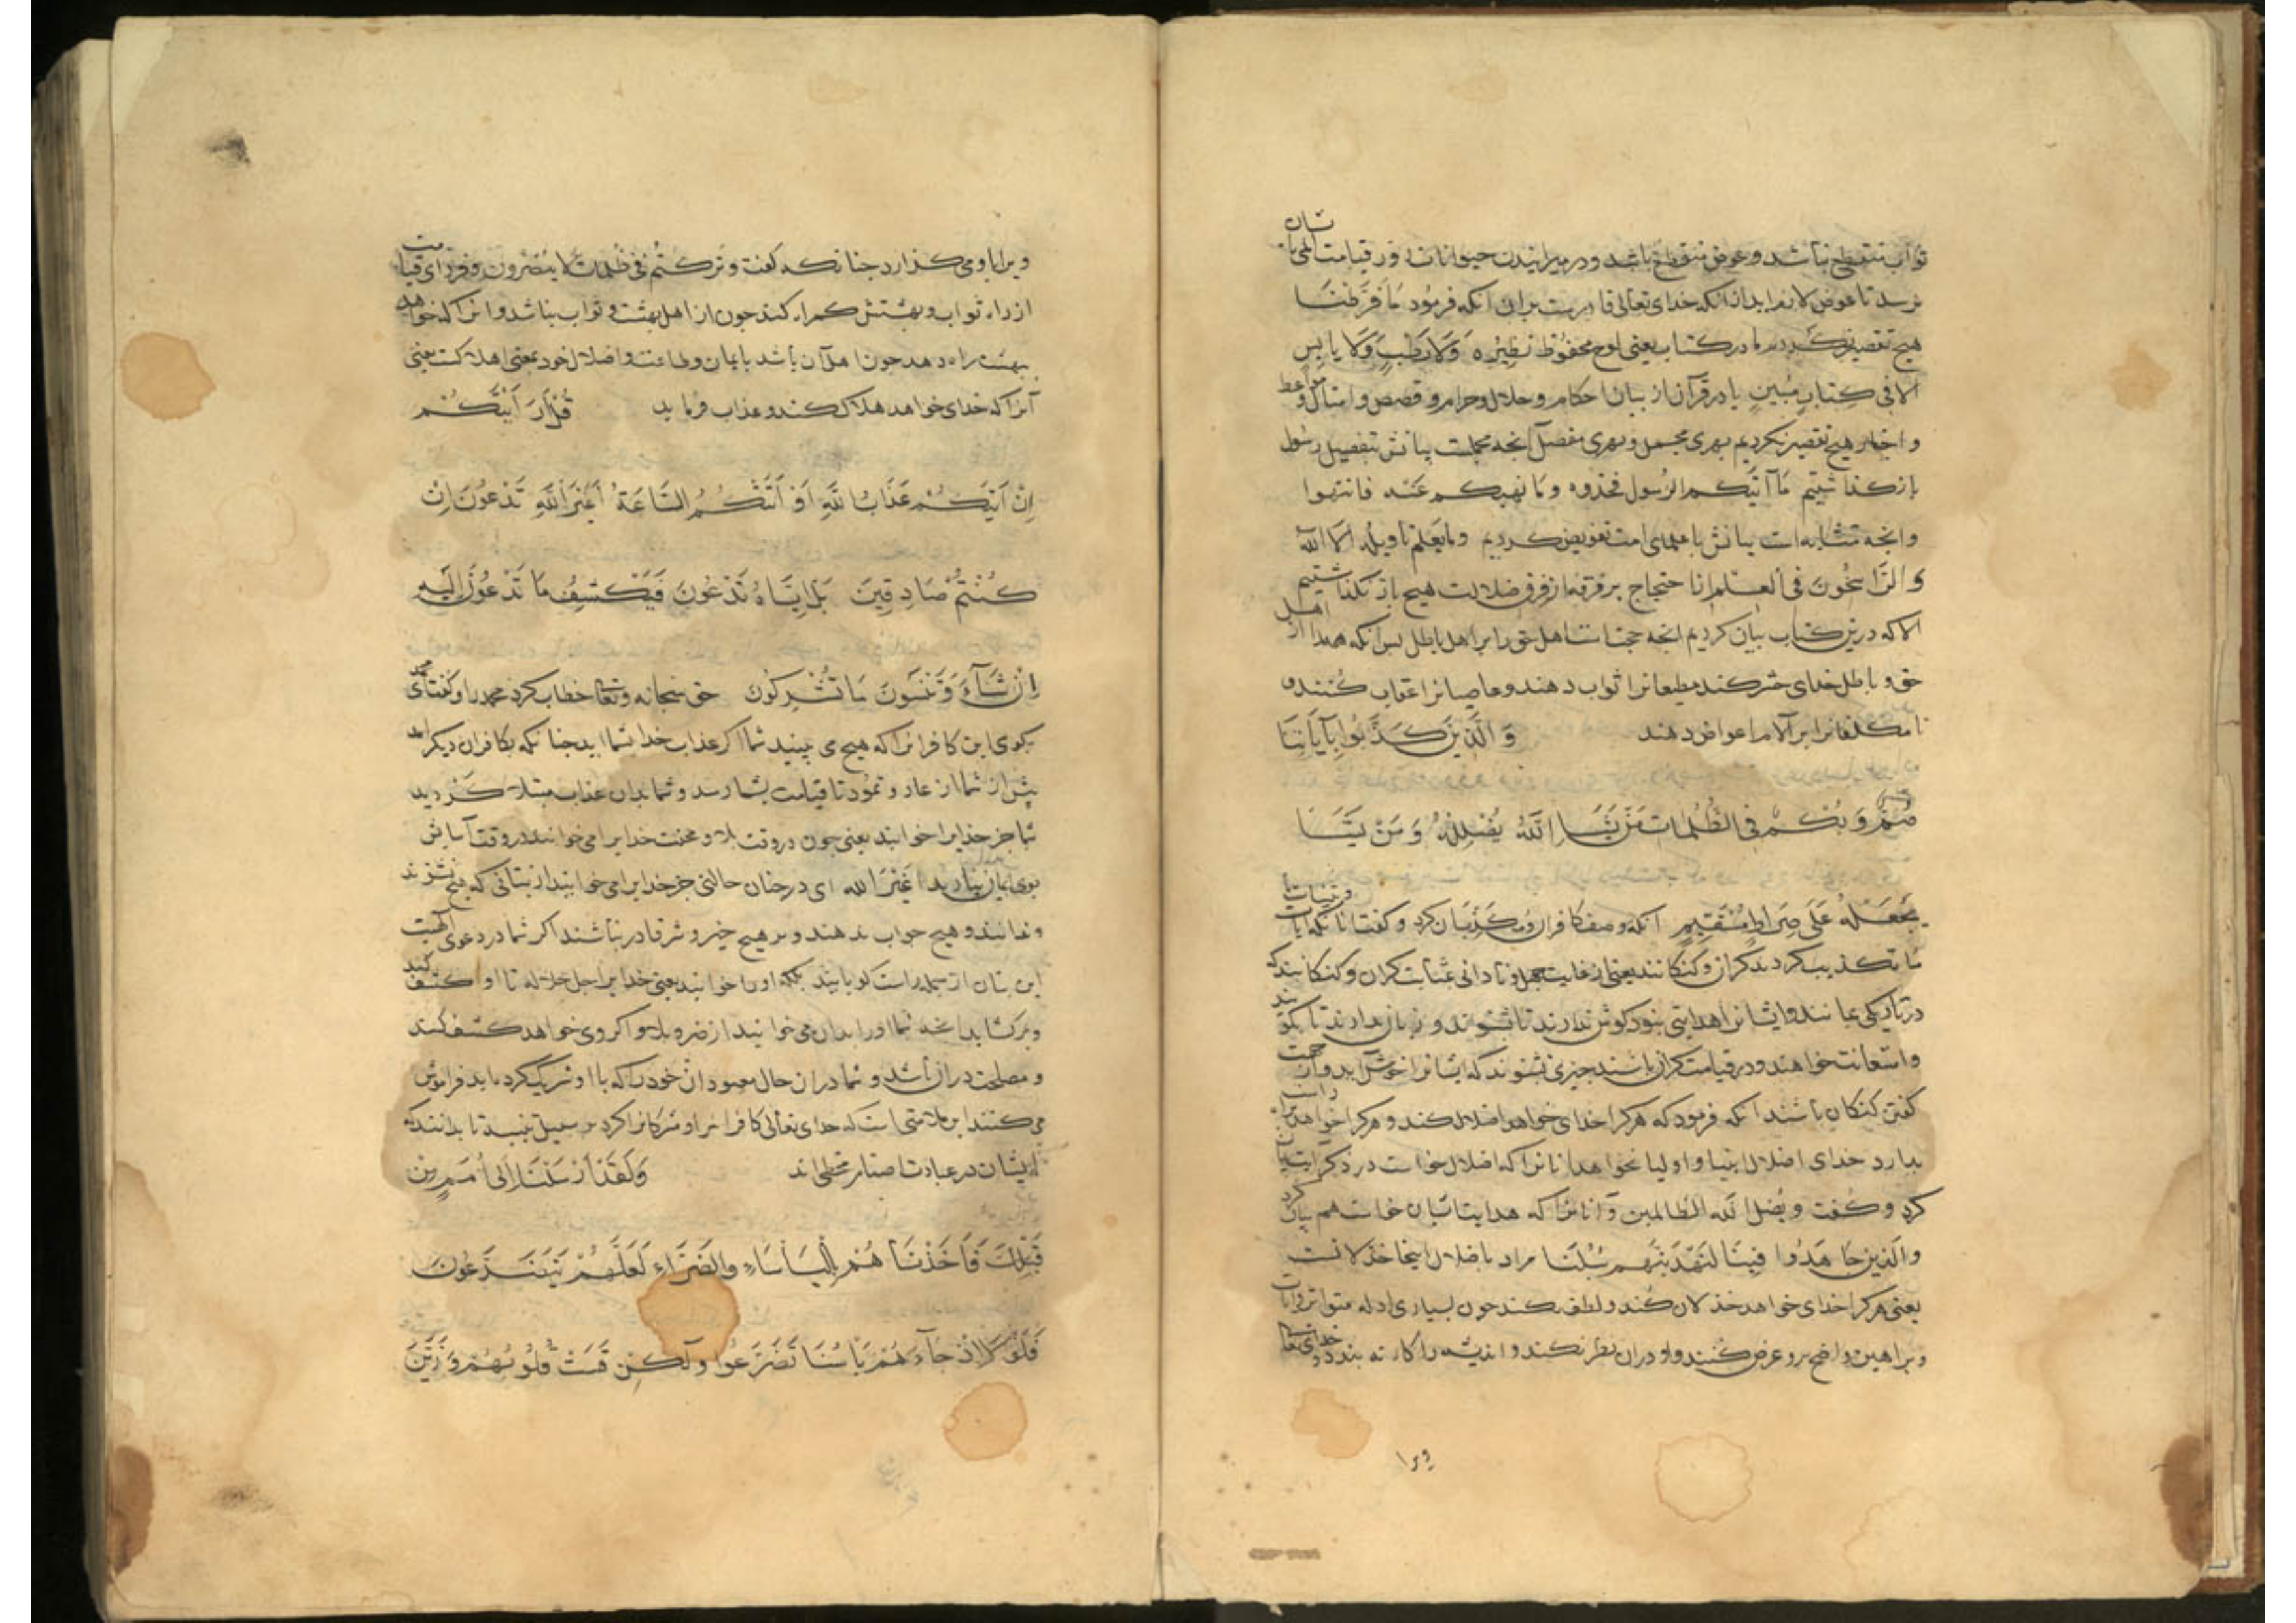 ثواب منقطع نباشد و عوض منقطع باشد و در میرانیدن حیوانات و در قیامت المی بایشان
نرسد تا عوض لازم آید از آنکه خدای تعالی قادرست بران آنکه فرمود مَا فَرَّطْنَا
هیچ تقصیر نکردیم ما در کتاب یعنی لوح محفوظ نظیره وَلَا رَطْبٍ وَلَا یَابِسٍ
اِلَّا فِی کِتَابٍ مُبِینٍ یا در قرآن از بیان احکام و حلال و حرام و قصص و امثال و مواعظ
و اخبار هیچ تقصیر نکردیم بهری مجمل و بهری مفصل آنجه مجملست بیانش بتفصیل رسول
بازکذاشتیم مَا آتَیکُم الرَّسُول فخذوه وَمَا نَهَیکُم عَنْه فانتهوا
و انجه متشابه است بیانش با علمای امت تفویض کردیم وما یَعلم تاویله الا الله
وَ الرَّاسِخُونَ فی العِلم اما احتجاج بر فرقه از فرق ضلالت هیچ باز نکذاشتیم
الا که درین کتاب بیان کردیم انجه حجتست اهل حق را بر اهل باطل بس آنکه همه را از اهل
حق و باطل خدای حشر کند مطیعانرا ثواب دهند و عاصیانرا عقاب کنند و
نامکلفانرا بر آلام اعواض دهند وَ الَّذِینَ کَذَّبُوا بِآیَاتِنَا
صُمٌّ وَ بُکْمٌ فِی الظُّلُمَات مَنْ یَشَاِ اللّٰهُ یُضْلِلْهُ وَ مَنْ یَشَا
یَجْعَلْهُ عَلَی صِرَاطٍ مُسْتَقِیمٍ آنکه وصف کافران و مکذبان کرد و کفت آنانکه بآیات و بینات
ما تکذیب کردند کران و کنکانند یعنی از غایت جهل و نادانی بمثابت کران و کنکانند که
در تاریکی بمانند و ایشانرا هدایتی نبود کوش ندارند تا بشنوند و زبان ندارند تا بکویند
و استعانت خواهند و در قیامت کران باشند جیزی نشنوند که ایشانرا خوش آید و از حجت
کفتن کنکان باشند آنکه فرمود که هرکرا خدای خواهد اضلال کند و هرکرا خواهد براه راست
بدارد خدای اضلال انبیا و اولیا نخواهد آنانرا که اضلال خواست در ذکر آیت بیان
کرد و کفت و یُضل الله الظالمین و آنانرا که هدایتشان خواست هم بیان کرد
والّذین جَاهَدُوا فِینَا لَنَهْدِیَنَّهم سُبُلَنَا مراد باضلال اینجا خذلانست
یعنی هرکرا خدای خواهد خذلان کند و لطف نکند جون بسیاری ادله متواتر و آیات
و براهین واضح برو عرض کنند و او دران نظر نکند و اندیشه را کار نه بندد خدای تعالی
ویرا
ویرا باو می کذارد جنانکه کفت و ترکتُم فی ظلمات لا یبصرون و فردای قیامت
از راه ثواب و بهشتش کمراه کند جون از اهل بهشت و ثواب نباشد و انرا که خواهد
ببهشت راه دهد جون اهل آن باشد بایمان و طاعت و اضلال خود بمعنی اهلاکست یعنی
آنرا که خدای خواهد هلاک کند و عذاب فرماید قُلْ أَرَأَیْتَکُمْ
اِنْ اَتَیکُمْ عَذَابُ اللّٰهِ اَوْ اَتَتْکُمُ السَّاعَةُ اَغَیْرَ اللّٰهِ تَدْعُونَ اِنْ
کُنْتُمْ صَادِقِینَ بَلْ اِیَّاهُ تَدْعُونَ فَیَکْشِفُ مَا تَدْعُونَ اِلَیْهِ
اِنْ شَآءَ وَ تَنْسَوْنَ مَا تُشْرِکُونَ حق سبحانه و تعالی خطاب کرد محمد را و کفت ای محمد
بکوی این کافرانرا که هیچ می بینید شما اکر عذاب خدا بشما آید جنانکه بکافران دیکر آمد
بیش از شما از عاد و ثمود تا قیامت بشما رسد و شما بدان عذاب مبتلا کردید
شما جز خدایرا خوانید یعنی جون در وقت بلا و محنت خدایرا می خوانید در وقت آسایش
ای در جنان حالتی جز خدایرا می خوانید از بتانی که هیچ نشنوند
و ندانند و هیچ جواب ندهند و بر هیچ خیر و شر قادر نباشند اکر شما در دعوی الهیت
این بتان راست کویانید بلکه او را خوانید یعنی خدایرا جل جلاله تا او کشف کند
و برکشاید انجه شما او را بدان می خوانید از ضر و بلا و اکر وی خواهد کشف کند
و مصلحت دران باشد و شما دران حال معبودان خود را که با او شریک کرده اید فراموش
می کنند این ملامتی است که خدای تعالی کافرانرا و مشرکانرا کرد بر سبیل تنبیه تا بدانند که
ایشان در عبادت اصنام مخطی اند وَلَقَدْ اَرْسَلْنَا اِلَی اُمَمٍ مِنْ
قَبْلِکَ فَاَخَذْنَاهُمْ بِالْبَأْسَاءِ وَالضَّرَّاءِ لَعَلَّهُمْ یَتَضَرَّعُونَ
فَلَوْلَا اِذْ جَآءَهُمْ بَأْسُنَا تَضَرَّعُوا وَلٰکِنْ قَسَتْ قُلُوبُهُمْ وَ زَیَّنَ